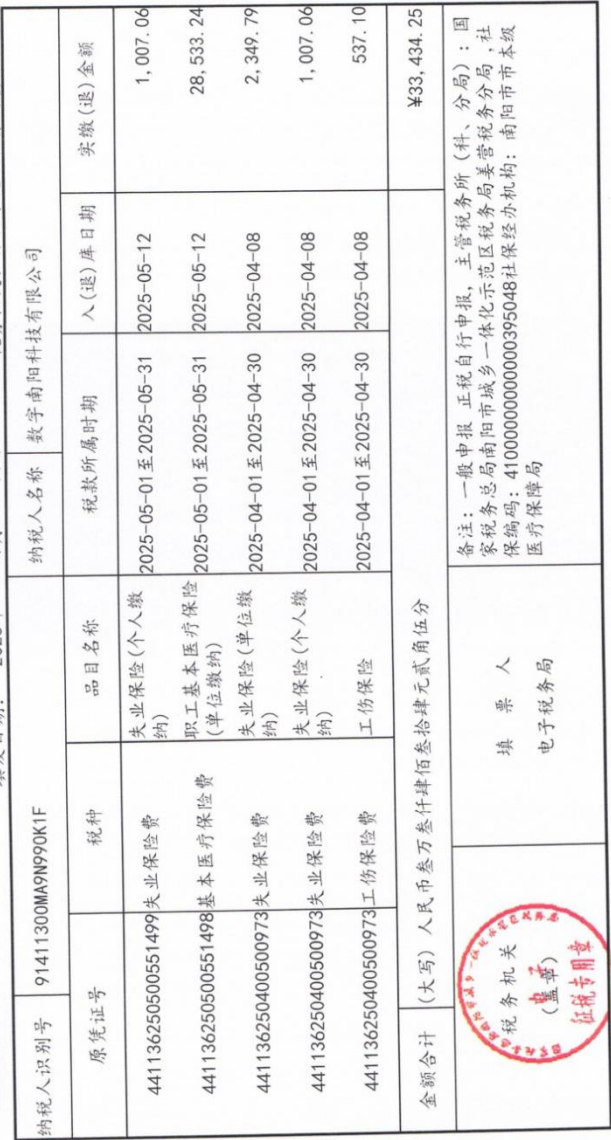 纳税人识别号 91411300MA9N990K1F 纳税人名称 数字南阳科技有限公司
原凭证号 税种 品目名称 税款所属时期 入(退)库日期 实缴(退)金额
441136250500551499 失业保险费 失业保险(个人缴
纳) 2025-05-01至2025-05-31 2025-05-12 1,007.06
441136250500551498 基本医疗保险费 职工基本医疗保险
(单位缴纳) 2025-05-01至2025-05-31 2025-05-12 28,533.24
441136250400500973 失业保险费 失业保险(单位缴
纳) 2025-04-01至2025-04-30 2025-04-08 2,349.79
441136250400500973 失业保险费 失业保险(个人缴
纳) 2025-04-01至2025-04-30 2025-04-08 1,007.06
441136250400500973 工伤保险费 工伤保险 2025-04-01至2025-04-30 2025-04-08 537.10
金额合计 (大写) 人民币叁万叁仟肆佰叁拾肆元贰角伍分 ¥33,434.25
税务机关
(盖章)
征税专用章
填 票 人
电子税务局
备注: 一般申报 正税自行申报, 主管税务所(科、分局): 国
家税务总局南阳市城乡一体化示范区税务局姜营税务分局, 社
保编码: 41000000000000395048社保经办机构: 南阳市市本级
医疗保障局